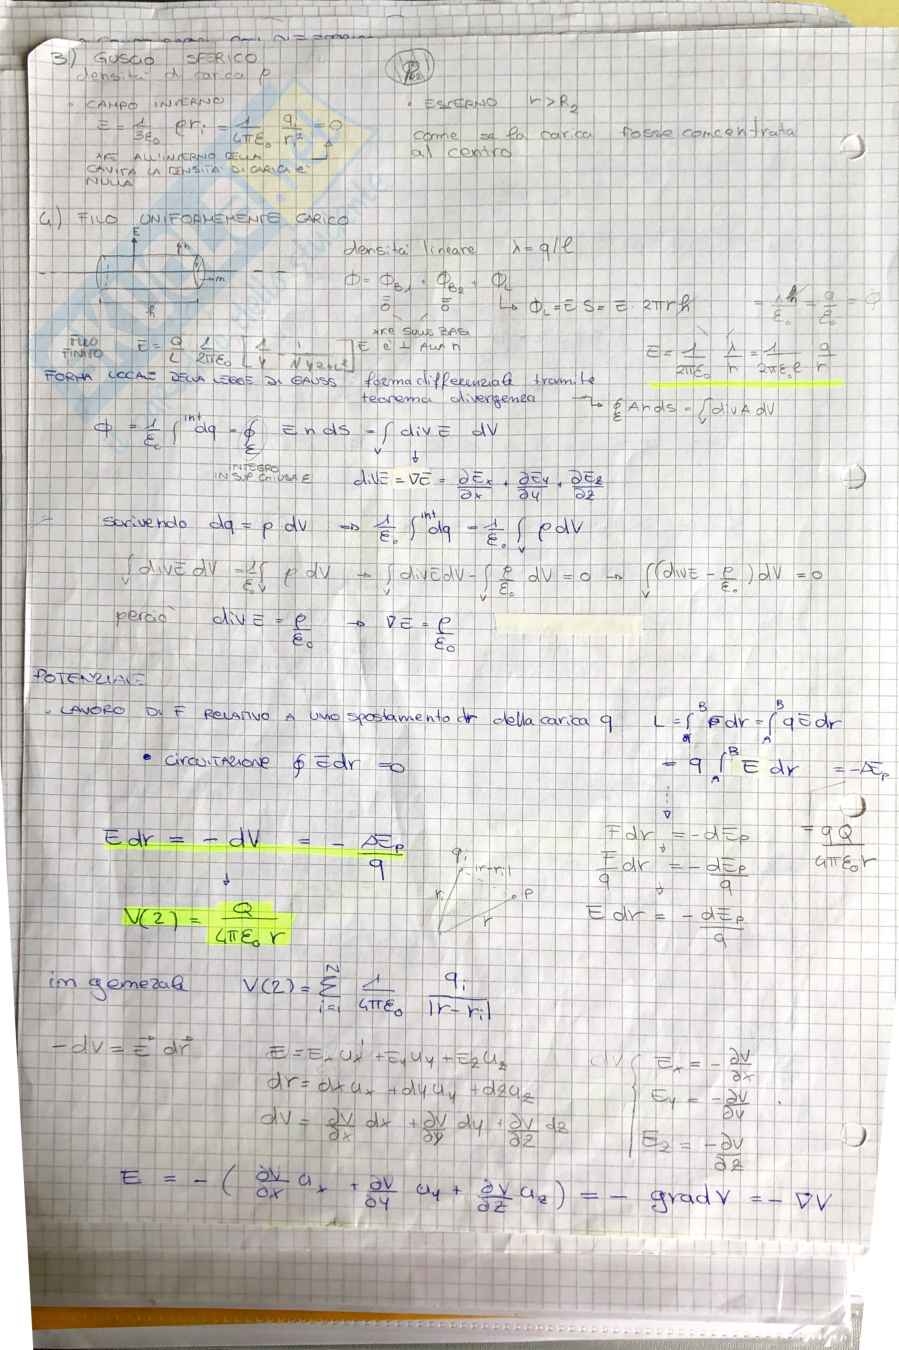 3) GUSCIO SFERICO
densità di carica ρ
R₂
• CAMPO INTERNO
E = 1/3ε₀ ρ rᵢ = 1/4πε₀ q/r² = 0
ALL'INTERNO DELLA
CAVITÀ LA DENSITÀ DI CARICA È
NULLA
• ESTERNO r > R₂
come se la carica fosse concentrata
al centro
4) FILO UNIFORMEMENTE CARICO
E
h
densità lineare λ = q/l
Φ = Φ_B1 + Φ_B2 + Φ_L
0 0
↳ Φ_L = E S = E · 2πrh = λh/ε₀ = q/ε₀
E è ⊥ ALLA n
E = 1/2πε₀ λ/r = 1/2πε₀l q/r
FILO
FINITO
E = q/L 1/2πε₀
FORMA LOCALE DELLA LEGGE DI GAUSS forma differenziale tramite
teorema divergenza → ∮_Σ A n dS = ∫ div A dV
Φ = 1/ε₀ ∫^int dq = ∮_Σ E n dS = ∫_V div E dV
INTEGRO
IN SUPERFICIE
div E = ∇E = ∂Ex/∂x + ∂Ey/∂y + ∂Ez/∂z
scrivendo dq = ρ dV → 1/ε₀ ∫^int dq = 1/ε₀ ∫_V ρ dV
∫_V div E dV = 1/ε₀ ∫_V ρ dV → ∫_V div E dV - ∫_V ρ/ε₀ dV = 0 → ∫_V (div E - ρ/ε₀) dV = 0
perciò div E = ρ/ε₀ → ∇E = ρ/ε₀
POTENZIALE
• LAVORO DI F RELATIVO A UNO spostamento dr della carica q L = ∫_A^B F dr = ∫_A^B q E dr
• CIRCUITAZIONE ∮ E dr = 0
= q ∫_A^B E dr = -ΔEp
E dr = - dV = - ΔEp/q
F dr = - dEp
= qQ/4πε₀r
F/q dr = - dEp/q
E dr = - dEp/q
qᵢ
|r-rᵢ|
P
rᵢ
r
V(2) = Q/4πε₀ r
in generale V(2) = Σ_{i=1}^N 1/4πε₀ qᵢ/|r-rᵢ|
-dV = E⃗ dr⃗
E = Ex ux + Ey uy + Ez uz
dr = dx ux + dy uy + dz uz
dV = ∂V/∂x dx + ∂V/∂y dy + ∂V/∂z dz
dV { Ex = - ∂V/∂x
Ey = - ∂V/∂y
Ez = - ∂V/∂z
E = - ( ∂V/∂x ux + ∂V/∂y uy + ∂V/∂z uz ) = - grad V = - ∇V